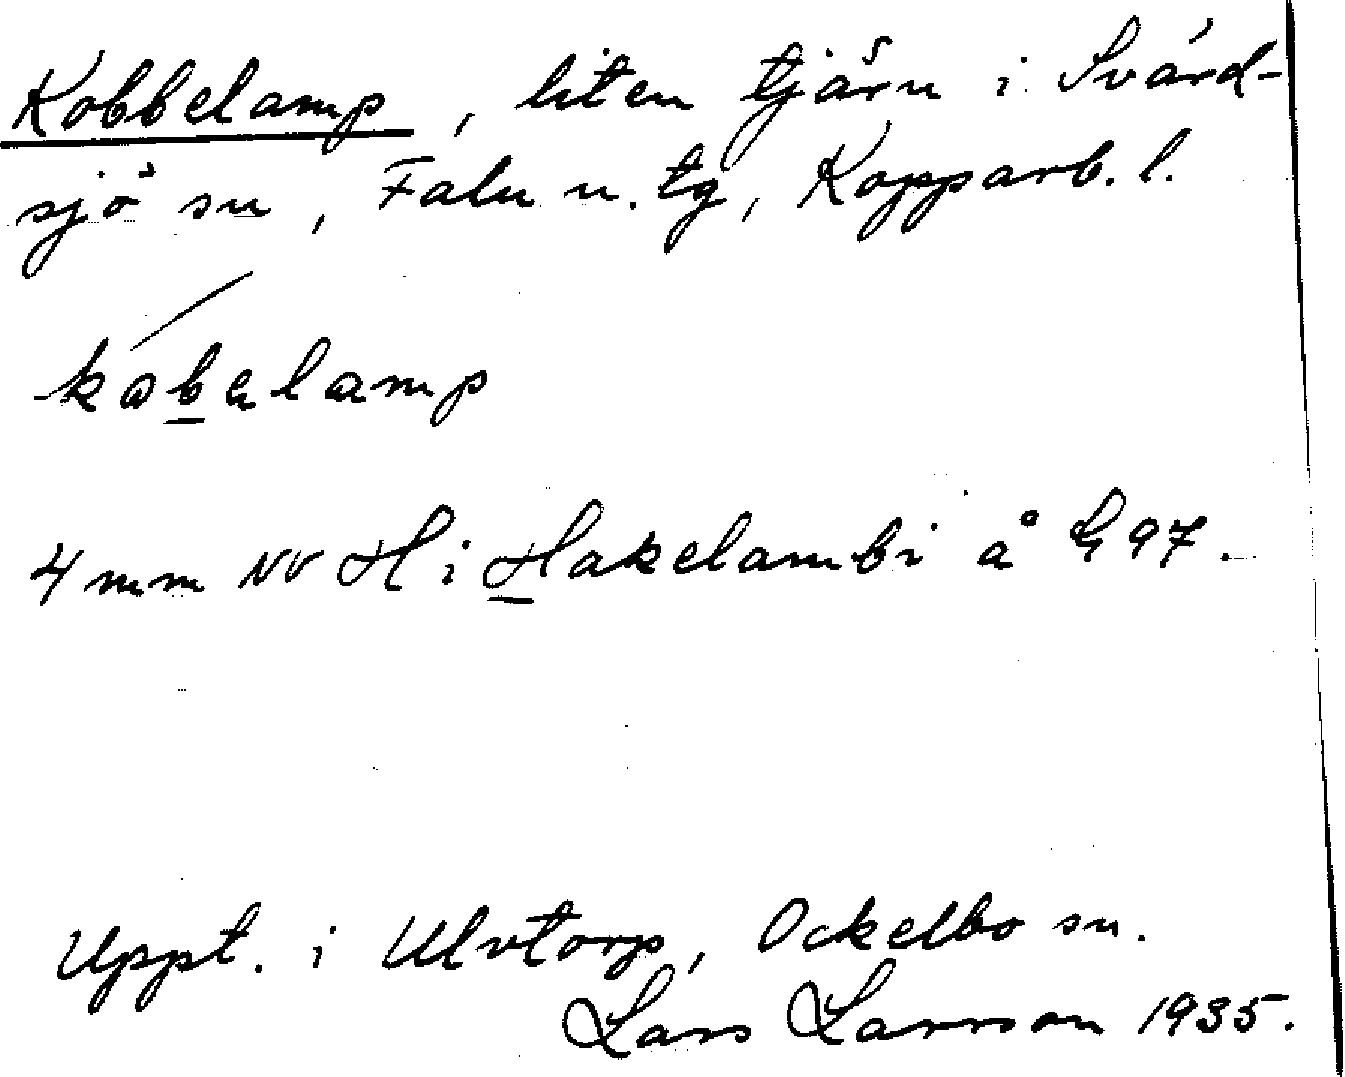 Kobbelamp, liten tjärn i Svärd-
sjö sn, Falu n. tg, Kopparb. l.
kobelamp
4 mm NV H i Hakelambi å G 97.
Uppt. i Ulvtorp, Ockelbo sn.
Lars Larsson 1935.